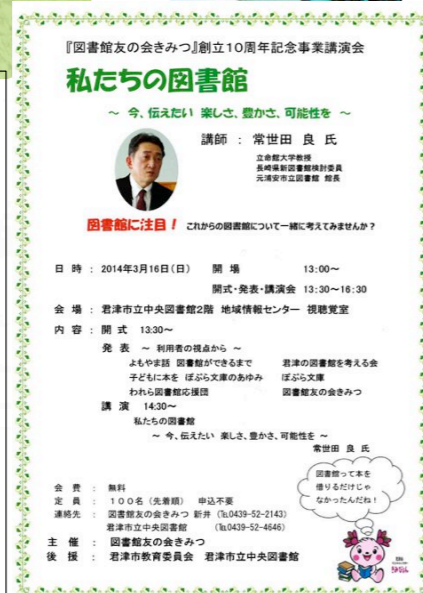 『図書館友の会きみつ』創立10周年記念事業講演会
私たちの図書館
～ 今、伝えたい 楽しさ、豊かさ、可能性を ～
講師 : 常世田 良 氏
立命館大学教授
長崎県新図書館検討委員
元浦安市立図書館 館長
図書館に注目！ これからの図書館について一緒に考えてみませんか？
日 時 : 2014年3月16日(日) 開 場 13:00～
開式・発表・講演会 13:30～16:30
会 場 : 君津市立中央図書館2階 地域情報センター 視聴覚室
内 容 : 開 式 13:30～
発 表 ～ 利用者の視点から ～
よもやま話 図書館ができるまで 君津の図書館を考える会
子どもに本を ぽぷら文庫のあゆみ ぽぷら文庫
われら図書館応援団 図書館友の会きみつ
講 演 14:30～
私たちの図書館
～ 今、伝えたい 楽しさ、豊かさ、可能性を ～
常世田 良 氏
図書館って本を
借りるだけじゃ
なかったんだね！
会 費 : 無料
定 員 : １００名(先着順) 申込不要
連絡先 : 図書館友の会きみつ 新井 (℡0439-52-2143)
君津市立中央図書館 (℡0439-52-4646)
主 催 : 図書館友の会きみつ
後 援 : 君津市教育委員会 君津市立中央図書館